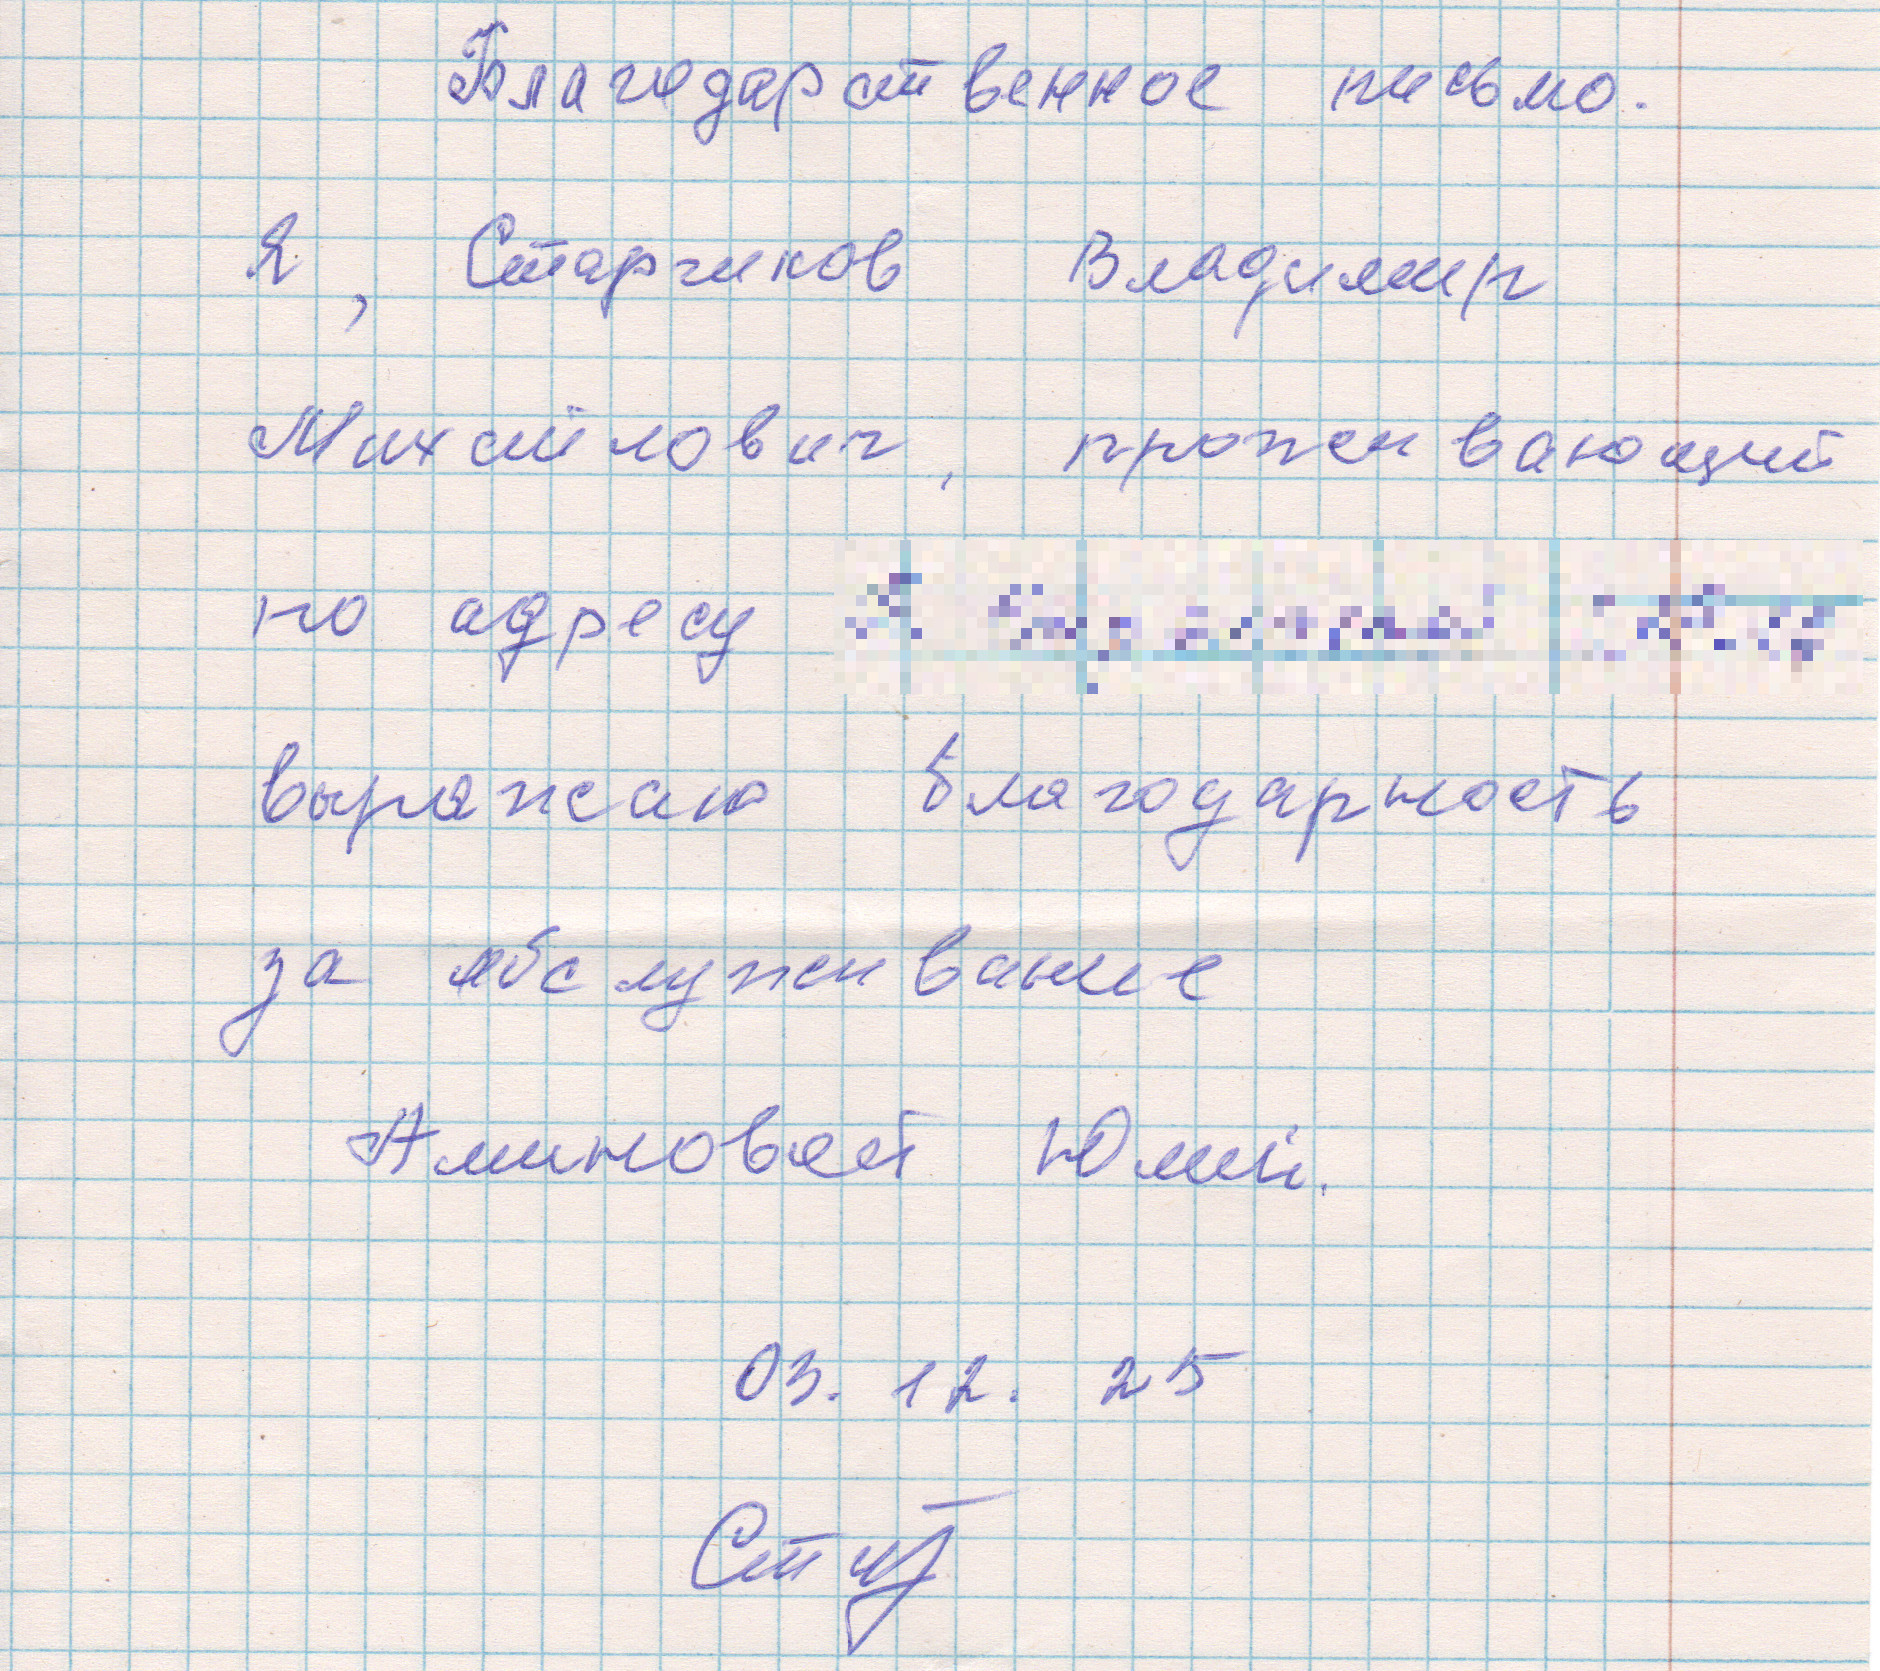 Благодарственное письмо.
Я, Старчиков Владимир
Михайлович, проживающий
по адресу
выражаю благодарность
за обслуживание
Аминовой Юлии.
03.12.25